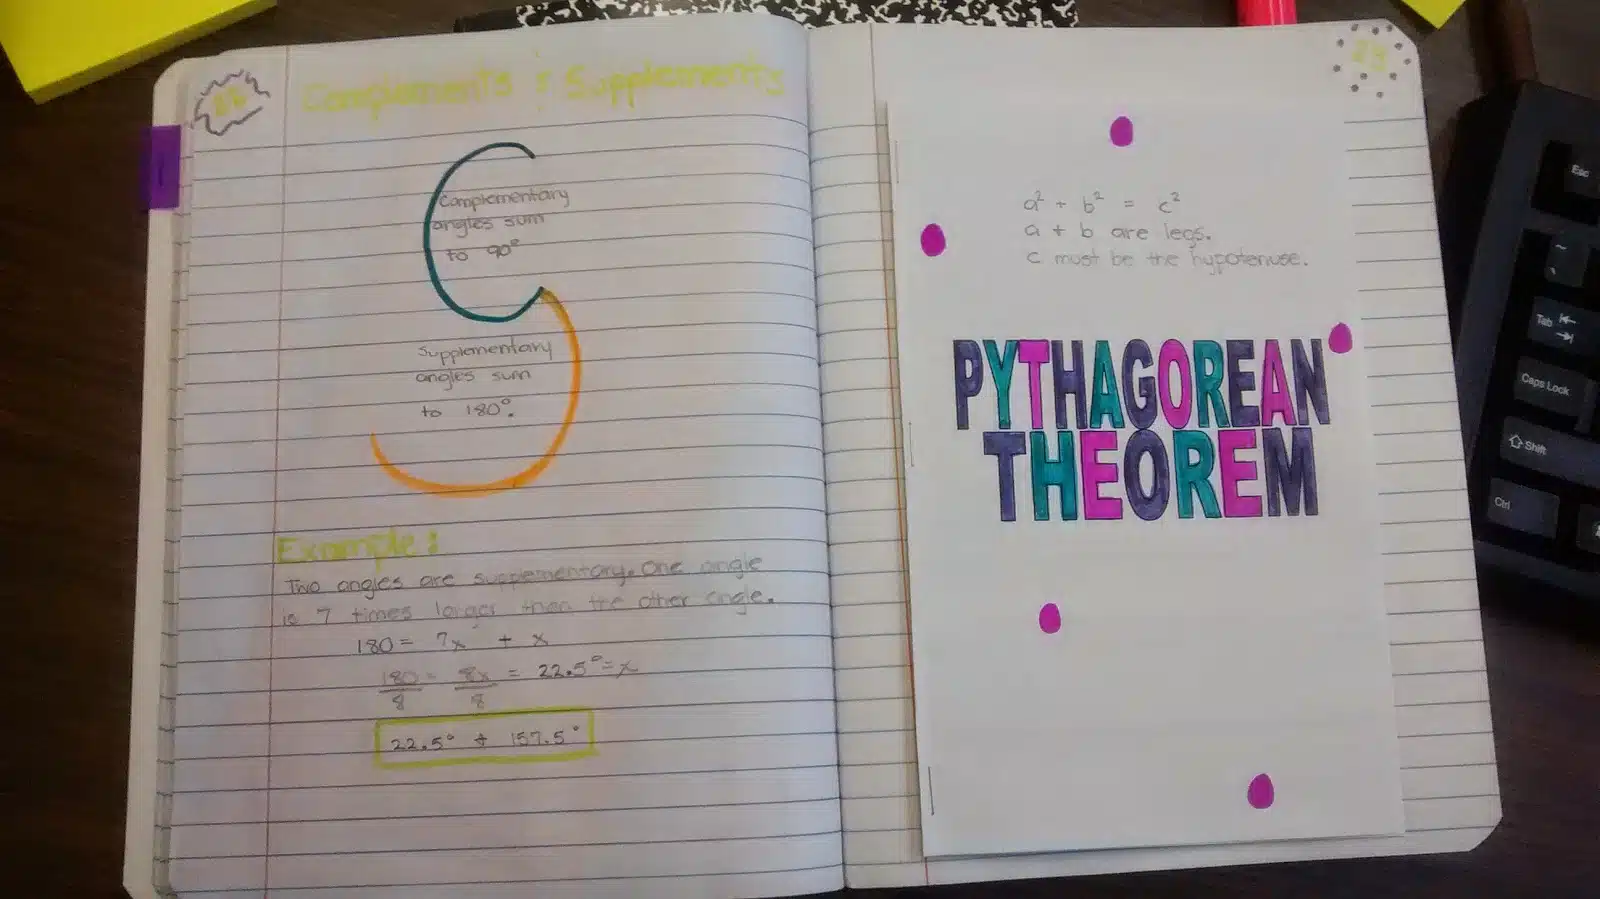 Complements : Supplements
Complementary
angles sum
to 90°
Supplementary
angles sum
to 180°.
Example:
Two angles are supplementary. One angle
is 7 times larger than the other angle.
180 = 7x + x
180 = 8x = 22.5° = x
8 8
22.5° + 157.5°
23
a² + b² = c²
a + b are legs.
c must be the hypotenuse.
PYTHAGOREAN
THEOREM
Esc
~
Tab
Caps Lock
Shift
Ctrl